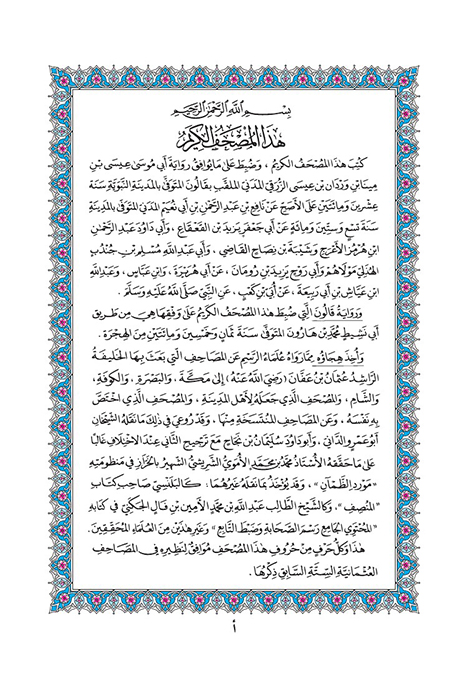 بِسْمِ اللَّهِ الرَّحْمَٰنِ الرَّحِيمِ
هٰذَا المُصْحَفُ الكَرِيمُ
كُتِبَ هٰذَا المُصْحَفُ الكَرِيمُ ، وَضُبِطَ عَلَى مَا يُوَافِقُ رِوَايَةَ أَبِي مُوسَى عِيسَى بْنِ
مِينَا بْنِ وَرْدَانَ بْنِ عِيسَى الزُّرَقِيِّ المَدَنِيِّ المُلَقَّبِ بِقَالُونَ المُتَوَفَّى بِالمَدِينَةِ النَّبَوِيَّةِ سَنَةَ
عِشْرِينَ وَمِائَتَيْنِ عَلَى الأَصَحِّ عَنْ نَافِعِ بْنِ عَبْدِ الرَّحْمٰنِ بْنِ أَبِي نُعَيْمٍ المَدَنِيِّ المُتَوَفَّى بِالمَدِينَةِ
سَنَةَ تِسْعٍ وَسِتِّينَ وَمِائَةٍ عَنْ أَبِي جَعْفَرٍ يَزِيدَ بْنِ القَعْقَاعِ ، وَأَبِي دَاوُدَ عَبْدِ الرَّحْمٰنِ
ابْنِ هُرْمُزَ الأَعْرَجِ وَشَيْبَةَ بْنِ نِصَاحٍ القَاضِي ، وَأَبِي عَبْدِ اللَّهِ مُسْلِمِ بْنِ جُنْدُبٍ
الهُذَلِيِّ مَوْلَاهُمْ وَأَبِي رَوْحٍ يَزِيدَ بْنِ رُومَانَ ، عَنْ أَبِي هُرَيْرَةَ ، وَابْنِ عَبَّاسٍ ، وَعَبْدِ اللَّهِ
ابْنِ عَيَّاشِ بْنِ أَبِي رَبِيعَةَ ، عَنْ أُبَيِّ بْنِ كَعْبٍ ، عَنِ النَّبِيِّ صَلَّى اللَّهُ عَلَيْهِ وَسَلَّمَ .
وَرِوَايَةُ قَالُونَ الَّتِي ضُبِطَ هٰذَا المُصْحَفُ الكَرِيمُ عَلَى وَفْقِهَا هِيَ مِنْ طَرِيقِ
أَبِي نَشِيطٍ مُحَمَّدِ بْنِ هَارُونَ المُتَوَفَّى سَنَةَ ثَمَانٍ وَخَمْسِينَ وَمِائَتَيْنِ مِنَ الهِجْرَةِ .
وَأُخِذَ هِجَاؤُهُ مِمَّا رَوَاهُ عُلَمَاءُ الرَّسْمِ عَنِ المَصَاحِفِ الَّتِي بَعَثَ بِهَا الخَلِيفَةُ
الرَّاشِدُ عُثْمَانُ بْنُ عَفَّانَ (رَضِيَ اللَّهُ عَنْهُ) إِلَى مَكَّةَ ، وَالبَصْرَةِ ، وَالكُوفَةِ ،
وَالشَّامِ ، وَالمُصْحَفِ الَّذِي جَعَلَهُ لِأَهْلِ المَدِينَةِ ، وَالمُصْحَفِ الَّذِي اخْتَصَّ
بِهِ نَفْسَهُ ، وَعَنِ المَصَاحِفِ المُنْتَسَخَةِ مِنْهَا ، وَقَدْ رُوعِيَ فِي ذٰلِكَ مَا نَقَلَهُ الشَّيْخَانِ
أَبُو عَمْرٍو الدَّانِيُّ ، وَأَبُو دَاوُدَ سُلَيْمَانُ بْنُ نَجَاحٍ مَعَ تَرْجِيحِ الثَّانِي عِنْدَ الاخْتِلَافِ غَالِبًا
عَلَى مَا حَقَّقَهُ الأُسْتَاذُ مُحَمَّدُ بْنُ مُحَمَّدٍ الأُمَوِيُّ الشَّرِيشِيُّ الشَّهِيرُ بِالخَرَّازِ فِي مَنْظُومَتِهِ
"مَوْرِدِ الظَّمْآنِ" ، وَقَدْ يُؤْخَذُ بِمَا نَقَلَهُ غَيْرُهُمَا : كَالبَلَنْسِيِّ صَاحِبِ كِتَابِ
"المُنْصِفِ" ، وَكَالشَّيْخِ الطَّالِبِ عَبْدِ اللَّهِ بْنِ مُحَمَّدٍ الأَمِينِ بْنِ فَالَ الجَكَنِيِّ فِي كِتَابِهِ
"المُحْتَوِي الجَامِعِ رَسْمَ الصَّحَابَةِ وَضَبْطَ التَّابِعِ" وَغَيْرِ هٰذَيْنِ مِنَ العُلَمَاءِ المُحَقِّقِينَ .
هٰذَا وَكُلُّ حَرْفٍ مِنْ حُرُوفِ هٰذَا المُصْحَفِ مُوَافِقٌ لِنَظِيرِهِ فِي المَصَاحِفِ
العُثْمَانِيَّةِ السِّتَّةِ السَّابِقِ ذِكْرُهَا .
أ